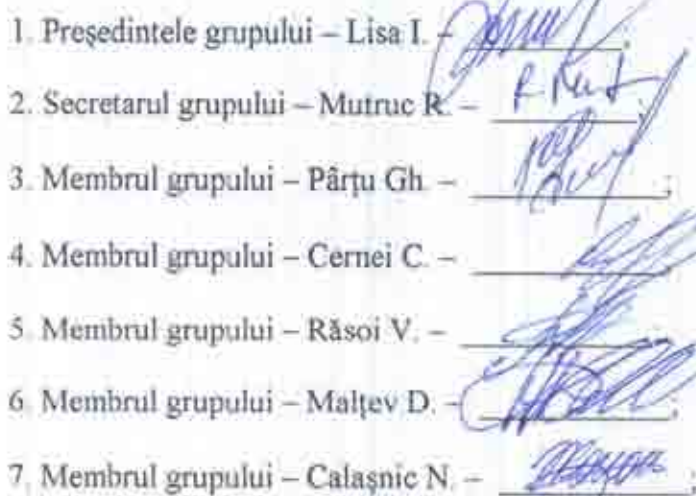 1. Președintele grupului – Lisa I. –
2. Secretarul grupului – Mutruc R. –
3. Membrul grupului – Pârțu Gh. –
4. Membrul grupului – Cernei C. –
5. Membrul grupului – Răsoi V. –
6. Membrul grupului – Malțev D. –
7. Membrul grupului – Calașnic N. –